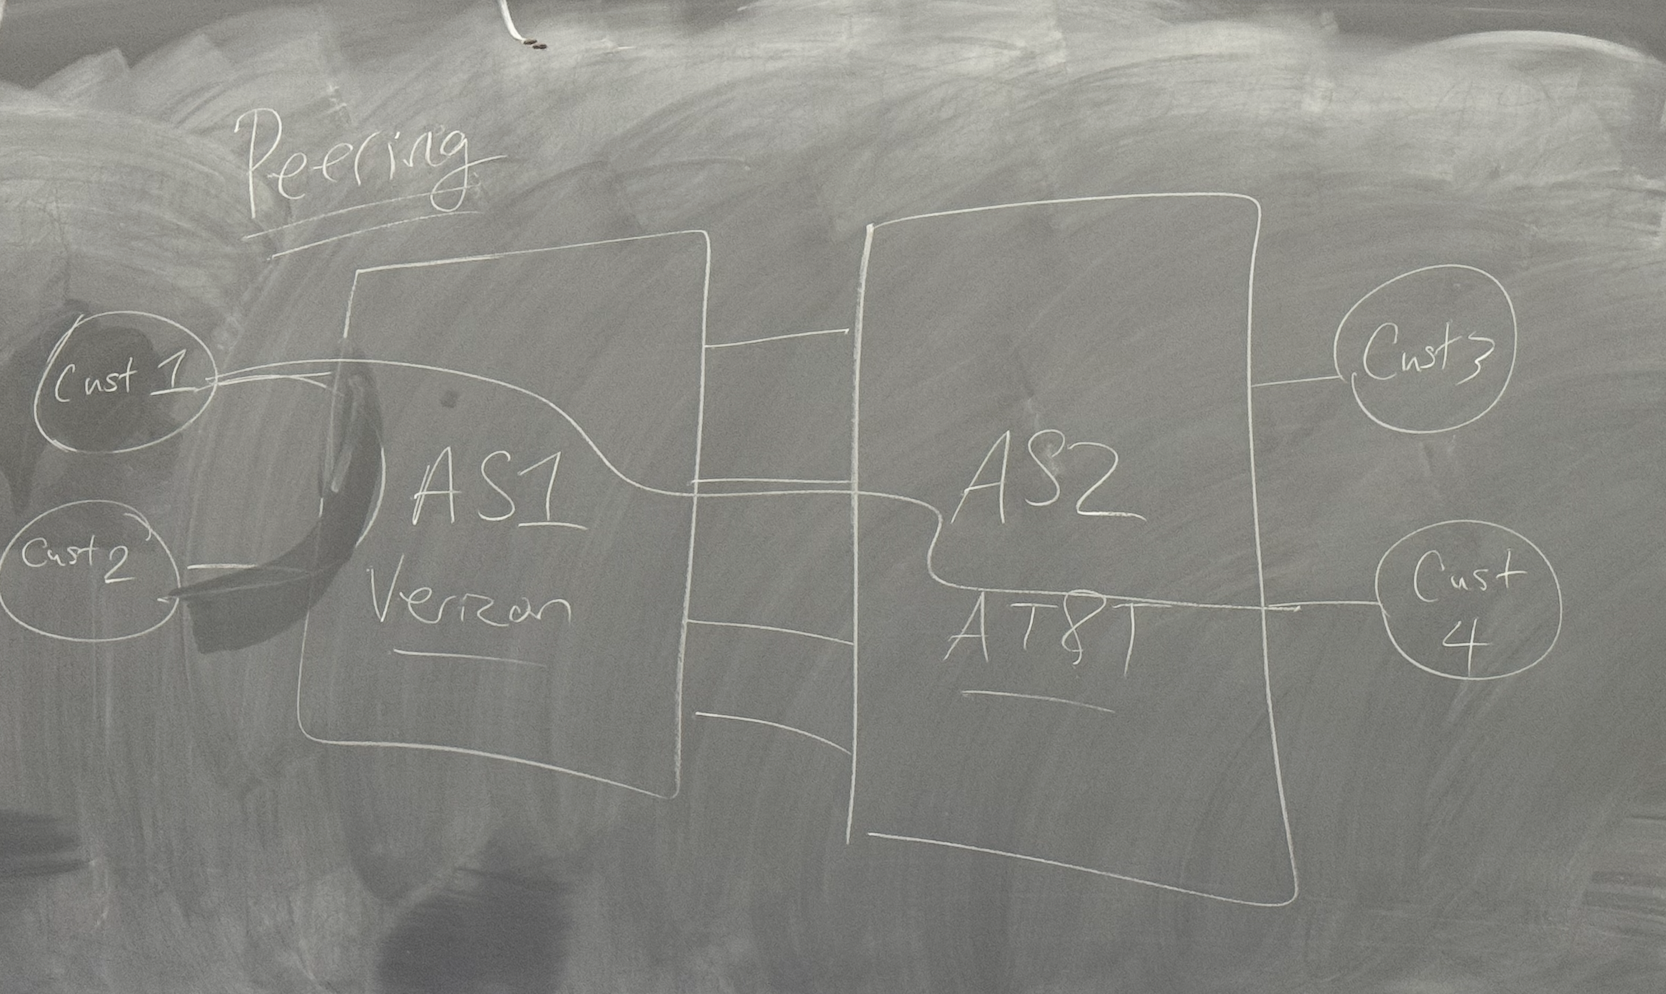 Peering
Cust 1
Cust 2
AS1
Verizon
AS2
AT&T
Cust 3
Cust
4